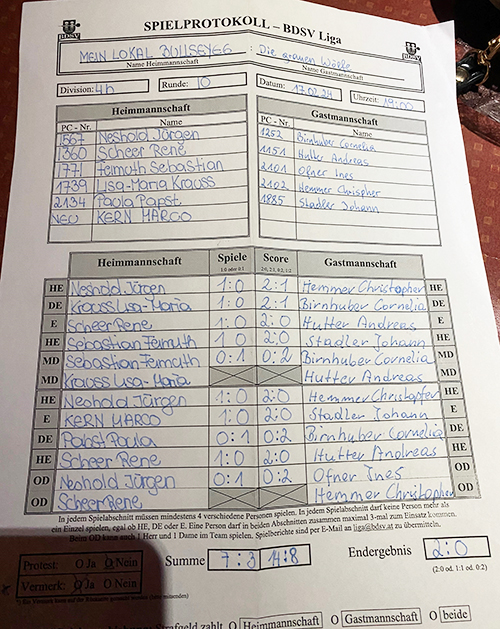 SPIELPROTOKOLL – BDSV Liga
BDSV
BDSV
MEIN LOKAL BULLSEYES : Die grauen Wölfe
Name Heimmannschaft Name Gastmannschaft
Division: 4h Runde: 10 Datum: 17.02.24 Uhrzeit: 19:00
Heimmannschaft Gastmannschaft
PC - Nr. Name PC - Nr. Name
1567 Neshold Jürgen 1252 Birnhuber Cornelia
1360 Scheer Rene 1151 Hutter Andreas
1771 Feimuth Sebastian 2101 Ofner Ines
1739 Lisa-Maria Krauss 2102 Hemmer Chrispher
2134 Paula Papst 1885 Stadler Johann
NEU KERN MARCO
Heimmannschaft Spiele Score Gastmannschaft
1:0 oder 0:1 2:0, 2:1, 0:2, 1:2
HE Neshold Jürgen 1:0 2:1 Hemmer Christopher HE
DE Krauss Lisa-Maria 1:0 2:1 Birnhuber Cornelia DE
E Scheer Rene 1:0 2:0 Hutter Andreas E
HE Sebastian Feimuth 1:0 2:0 Stadler Johann HE
MD Sebastian Feimuth 0:1 0:2 Birnhuber Cornelia MD
MD Krauss Lisa-Maria Hutter Andreas MD
HE Neshold Jürgen 1:0 2:0 Hemmer Christopfer HE
E KERN MARCO 1:0 2:0 Stadler Johann E
DE Pabst Paula 0:1 0:2 Birnhuber Cornelia DE
HE Scheer Rene 1:0 2:0 Hutter Andreas HE
OD Neshold Jürgen 0:1 0:2 Ofner Ines OD
OD Scheer Rene Hemmer Christopher OD
In jedem Spielabschnitt müssen mindestens 4 verschiedene Personen spielen. In jedem Spielabschnitt darf keine Person mehr als
ein Einzel spielen, egal ob HE, DE oder E. Eine Person darf in beiden Abschnitten zusammen maximal 3-mal zum Einsatz kommen.
Beim OD kann auch 1 Herr und 1 Dame im Team spielen. Spielberichte sind per E-Mail an liga@bdsv.at zu übermitteln.
Protest: O Ja O Nein Summe 7:3 14:8 Endergebnis 2:0
Vermerk: O Ja O Nein (2:0 od. 1:1 od. 0:2)
Strafgeld zahlt O Heimmannschaft O Gastmannschaft O beide